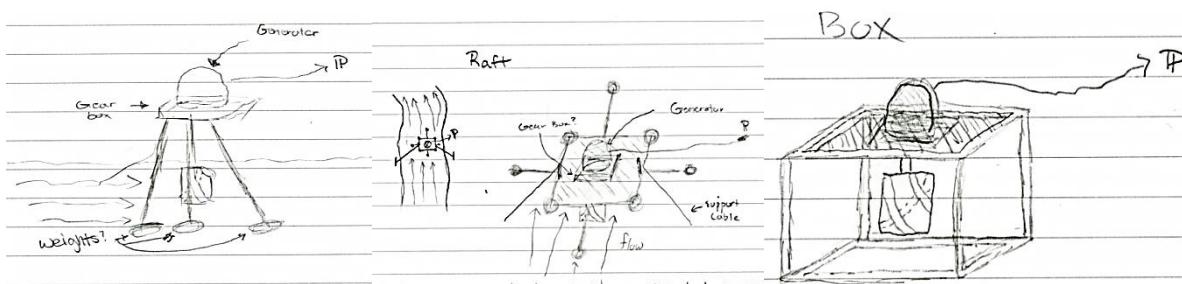 Generator
P
Gear
box
Weights?
Raft
Generator
Gear Box?
P
P
Support
Cable
flow
Box
P